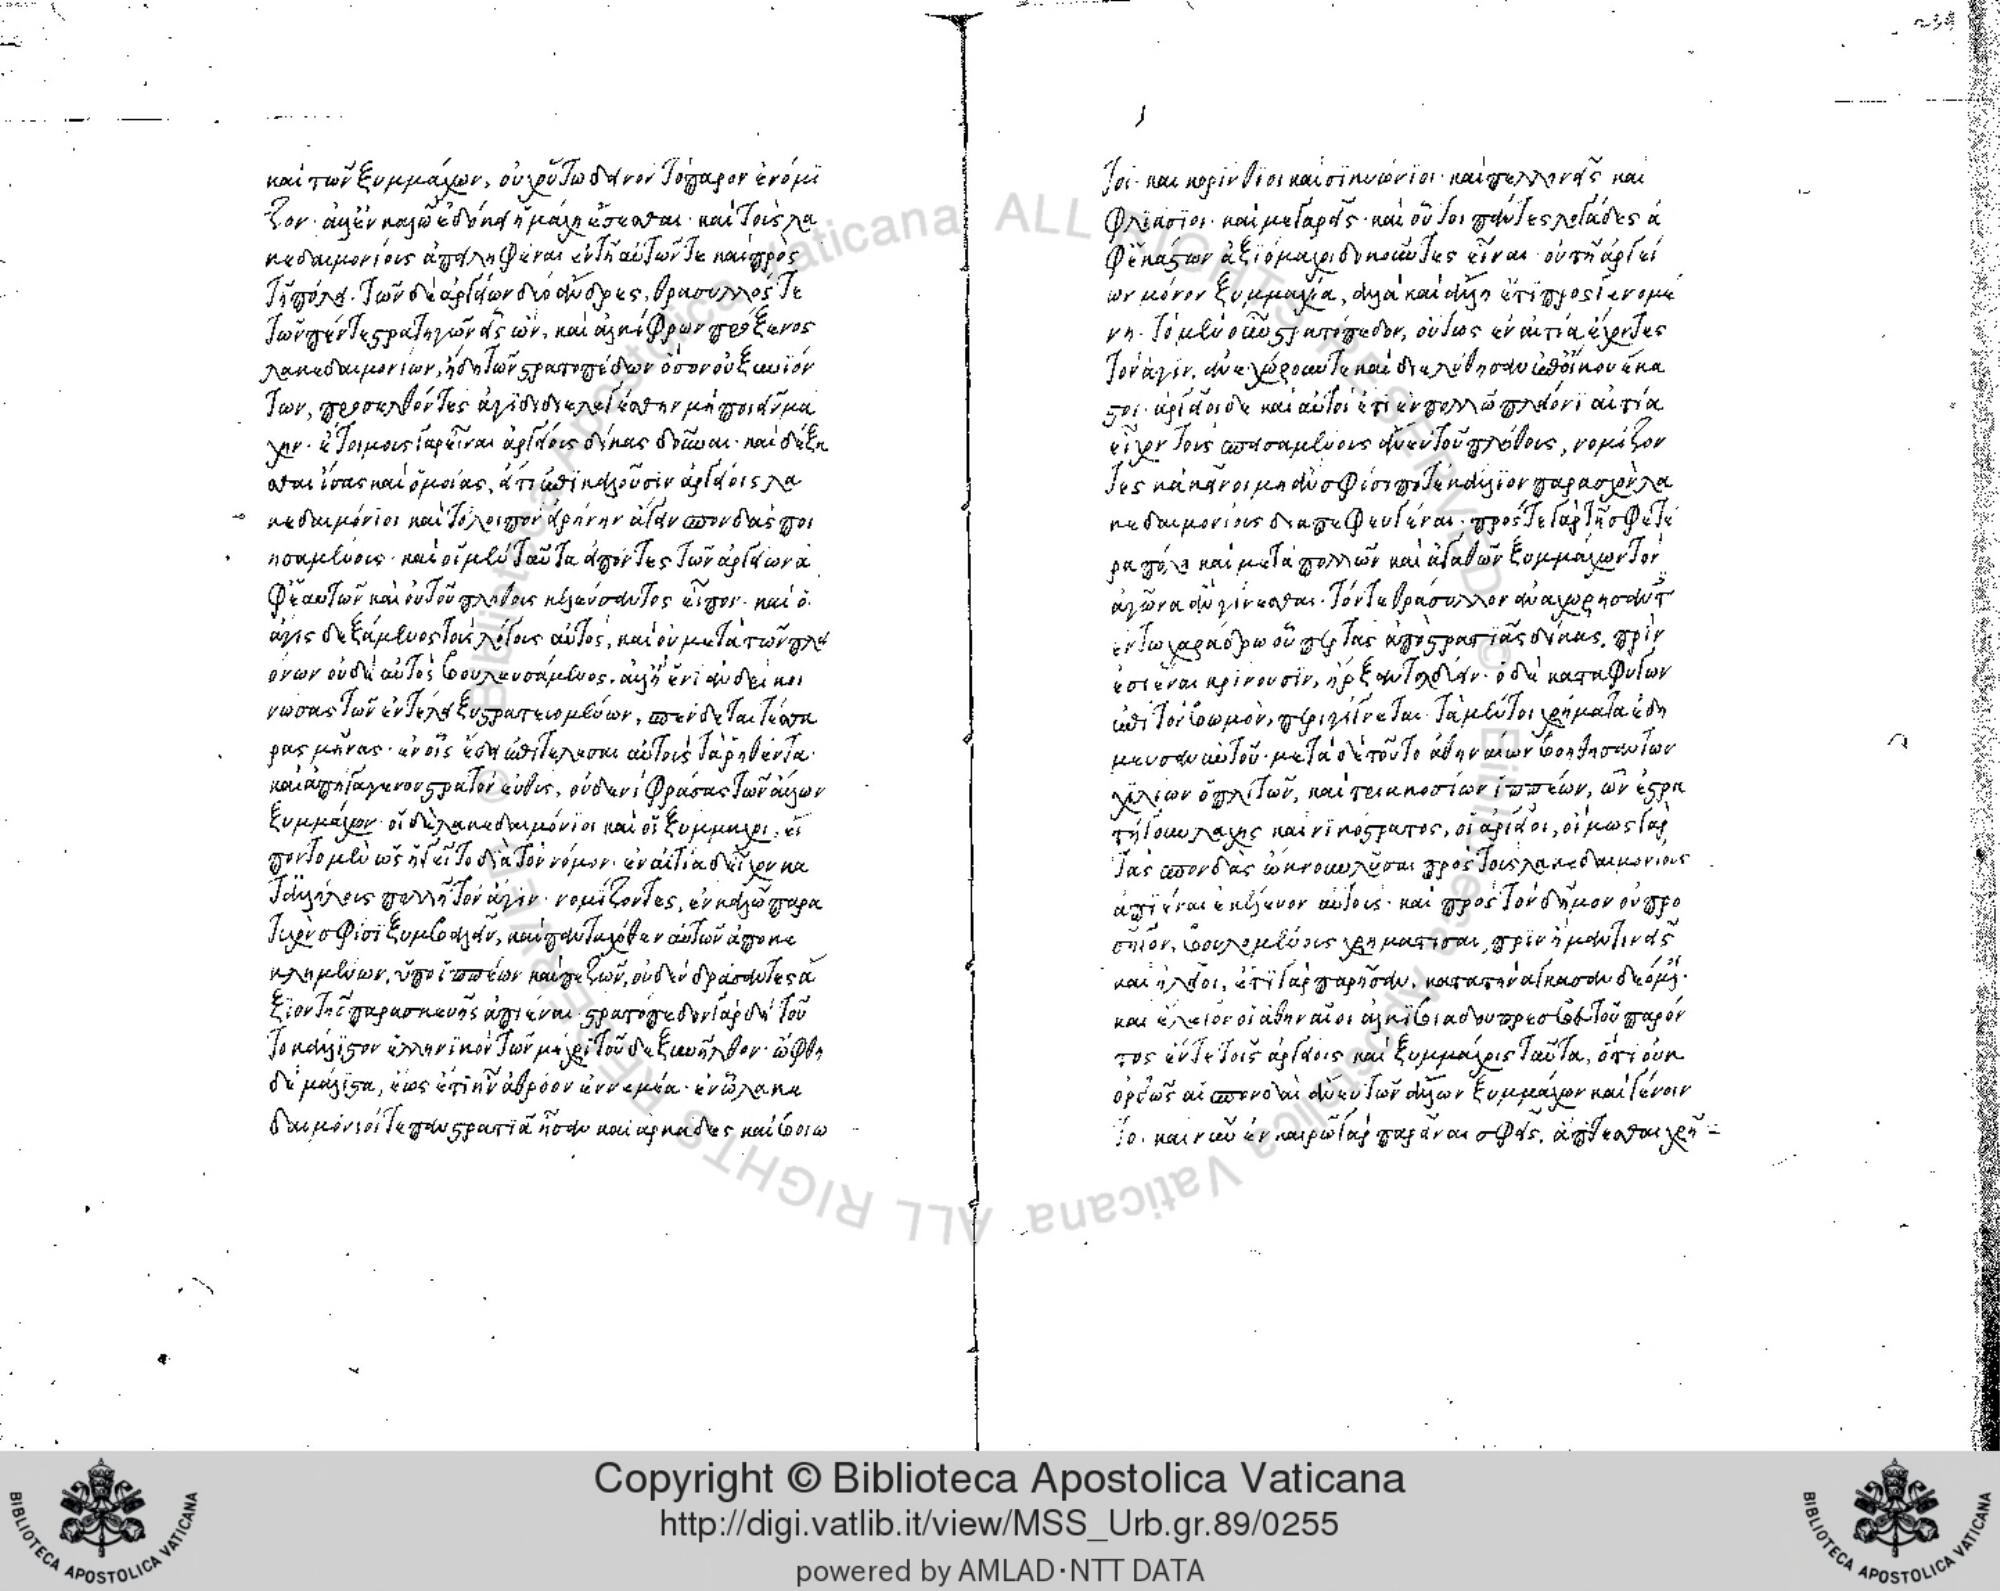 καὶ τῶν ξυμμάχων, οὐχ οὕτω δεινὸν τὸ παρὸν ἐνόμι
ζον· ἀλλ' ἐν καλῷ ἐδόκει ἡ μάχη ἔσεσθαι· καὶ τοὺς λα
κεδαιμονίους ἀπειληφέναι ἐν τῇ αὑτῶν τε καὶ πρὸς
τῇ πόλει. τῶν δὲ ἀργείων δύο ἄνδρες, θράσυλλός τε
τῶν πέντε στρατηγῶν εἷς ὢν, καὶ ἀλκίφρων πρόξενος
λακεδαιμονίων, ἤδη τῶν στρατοπέδων ὅσον οὐ ξυνιόν
των, προσελθόντες ἄγιδι διελεγέσθην μὴ ποιεῖν μά
χην· ἑτοίμους γὰρ εἶναι ἀργείους δίκας δοῦναι· καὶ δέξα
σθαι ἴσας καὶ ὁμοίας, εἴ τι ἐπικαλοῦσιν ἀργείοις λα
κεδαιμόνιοι καὶ τὸ λοιπὸν εἰρήνην ἄγειν σπονδὰς ποι
ησαμένους· καὶ οἱ μὲν ταῦτα εἰπόντες τῶν ἀργείων ἀ
φ' ἑαυτῶν καὶ οὐ τοῦ πλήθους κελεύσαντος εἶπον· καὶ ὁ
ἆγις δεξάμενος τοὺς λόγους αὐτὸς, καὶ οὐ μετὰ τῶν πλει
όνων οὐδὲ αὐτὸς βουλευσάμενος, ἀλλ' ἢ ἑνὶ ἀνδρὶ κοι
νώσας τῶν ἐν τέλει ξυστρατευομένων, σπένδεται τέσσα
ρας μῆνας· ἐν οἷς ἔδει ἐπιτελέσαι αὐτοὺς τὰ ῥηθέντα·
καὶ ἀπήγαγε τὸν στρατὸν εὐθὺς, οὐδενὶ φράσας τῶν ἄλλων
ξυμμάχων· οἱ δὲ λακεδαιμόνιοι καὶ οἱ ξύμμαχοι, εἵ
ποντο μὲν ὡς ἡγεῖτο διὰ τὸν νόμον· ἐν αἰτίᾳ δ' εἶχον κα
τ' ἀλλήλους πολλῇ τὸν ἆγιν· νομίζοντες, ἐν καλῷ παρα
τυχὸν σφίσι ξυμβαλεῖν, καὶ πανταχόθεν αὐτῶν ἀποκε
κλημένων, ὑπὸ ἱππέων καὶ πεζῶν, οὐδὲν δράσαντες ἄ
ξιον τῆς παρασκευῆς ἀπιέναι· στρατόπεδον γὰρ δὴ τοῦ
το κάλλιστον ἑλληνικὸν τῶν μέχρι τοῦδε ξυνῆλθον· ὤφθη
δὲ μάλιστα, ἕως ἔτι ἦν ἀθρόον ἐν νεμέᾳ· ἐν ᾧ λακε
δαιμόνιοί τε πανστρατιᾷ ἦσαν καὶ ἀρκάδες καὶ βοιω
τοὶ· καὶ κορίνθιοι καὶ σικυώνιοι· καὶ πελληνεῖς καὶ
φλιάσιοι· καὶ μεγαρεῖς· καὶ οὗτοι πάντες λογάδες ἀ
φ' ἑκάστων ἀξιόμαχοι δοκοῦντες εἶναι· οὐ τῇ ἀργεί
ων μόνον ξυμμαχίᾳ, ἀλλὰ καὶ ἄλλῃ ἔτι προσγενομέ
νῃ· τὸ μὲν οὖν στρατόπεδον, οὕτως ἐν αἰτίᾳ ἔχοντες
τὸν ἆγιν, ἀνεχώρουν τε καὶ διελύθησαν ἐπ' οἴκου ἕκα
στοι· ἀργεῖοι δὲ καὶ αὐτοὶ ἔτι ἐν πολλῷ πλείονι αἰτίᾳ
εἶχον τοὺς σπεισαμένους ἄνευ τοῦ πλήθους, νομίζον
τες κἀκεῖνοι μὴ ἂν σφίσι ποτὲ κάλλιον παρασχὸν λα
κεδαιμονίους διαπεφευγέναι· πρός τε γὰρ τῇ σφετέ
ρᾳ πόλει καὶ μετὰ πολλῶν καὶ ἀγαθῶν ξυμμάχων τὸν
ἀγῶνα ἂν γίγνεσθαι· τόν τε θράσυλλον ἀναχωρήσαντ
ἐν τῷ χαράδρῳ οὗ περ τὰς ἀπὸ στρατιᾶς δίκας, πρὶν
ἐσιέναι κρίνουσιν, ἤρξαντο λεύειν· ὁ δὲ καταφυγὼν
ἐπὶ τὸν βωμὸν, περιγίγνεται· τὰ μέντοι χρήματα ἐδή
μευσαν αὐτοῦ· μετὰ δὲ τοῦτο ἀθηναίων βοηθησάντων
χιλίων ὁπλιτῶν, καὶ τριακοσίων ἱππέων, ὧν ἐστρα
τήγουν λάχης καὶ νικόστρατος, οἱ ἀργεῖοι, ὅμως γὰρ
τὰς σπονδὰς ὤκνουν λῦσαι πρὸς τοὺς λακεδαιμονίους
ἀπιέναι ἐκέλευον αὐτοὺς· καὶ πρὸς τὸν δῆμον οὐ προ
σῆγον, βουλομένους χρηματίσαι, πρὶν ἢ μαντινεῖς
καὶ ἠλεῖοι, ἔτι γὰρ παρῆσαν, κατηνάγκασαν δεόμενοι·
καὶ ἔλεγον οἱ ἀθηναῖοι ἀλκιβιάδου πρεσβευτοῦ παρόν
τος ἔν τε τοῖς ἀργείοις καὶ ξυμμάχοις ταῦτα, ὅτι οὐκ
ὀρθῶς αἱ σπονδαὶ ἄνευ τῶν ἄλλων ξυμμάχων καὶ γένοιν
το· καὶ νῦν ἐν καιρῷ γὰρ παρεῖναι σφεῖς, ἅπτεσθαι χρῆ
Copyright © Biblioteca Apostolica Vaticana
http://digi.vatlib.it/view/MSS_Urb.gr.89/0255
powered by AMLAD·NTT DATA